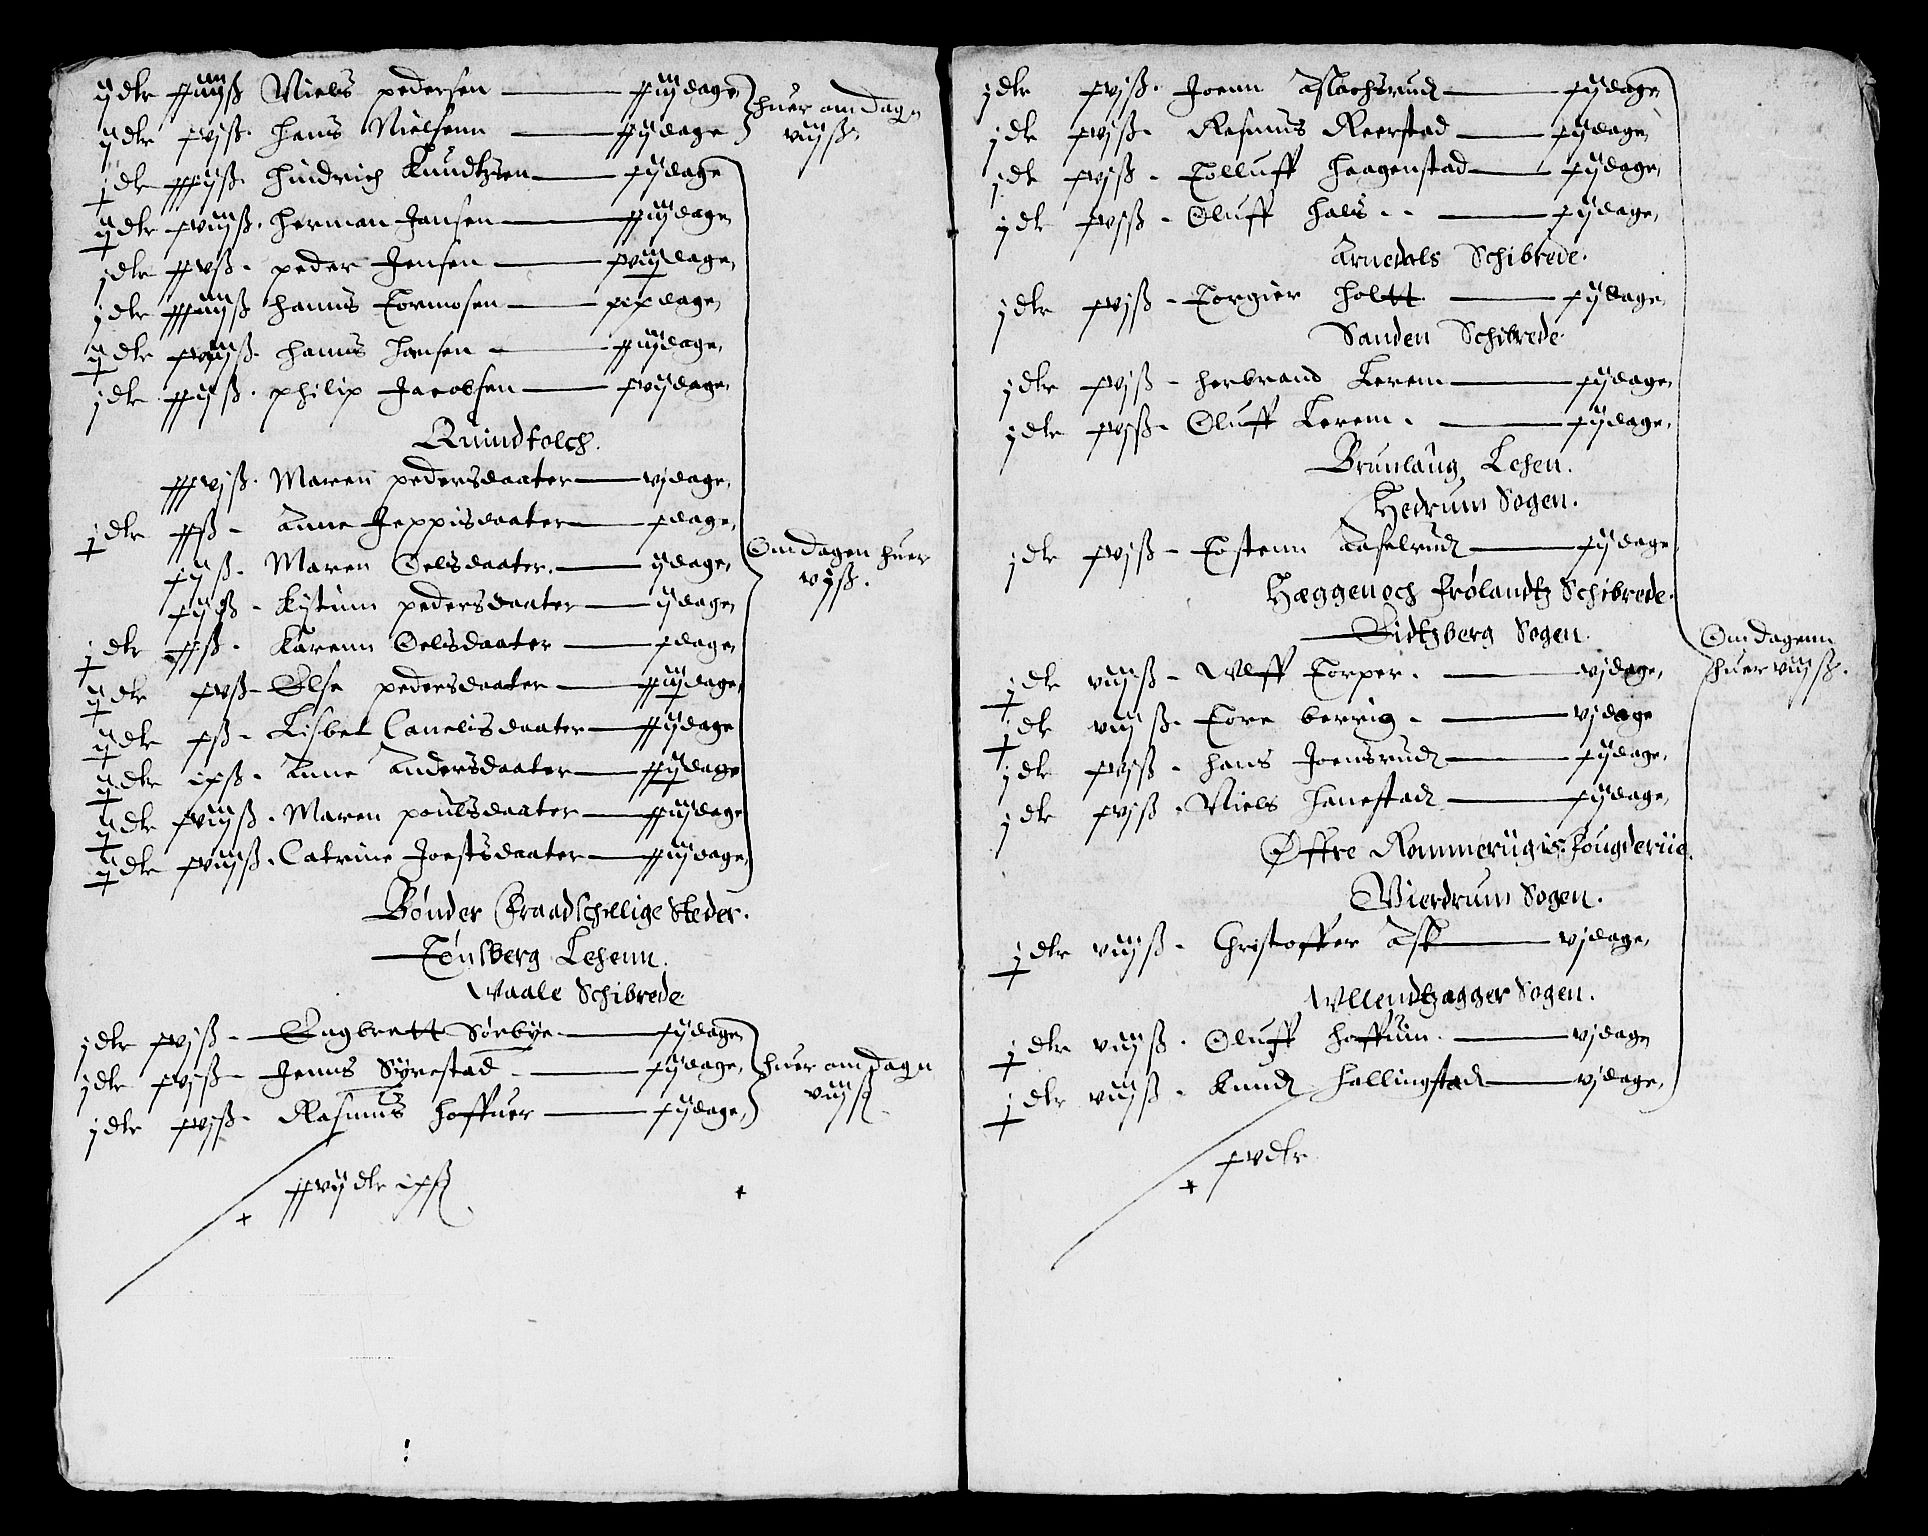 ij dlr xxiiijß Niels pedersen xxiij dage,
ij dlr xvjß. Hans Nielsenn xxij dage
huer om dagn
viijß
j dlr xxxijß. Hindrich Knudtzsen xij dage
ij dlr xviijß. Herman Jansen xxiij dage,
j dlr xxvß. peder Jensen xviij dage,
j dlr xxxiiijß Hanns Tormosen xix dage,
ij dlr xviijß. Hanns Hansen xxiij dage,
j dlr xxijß. philip Jacobsen xvij dage,
Quindfolch.
xxxvjß. Maren pedersdaater vj dage,
j dlr xxß Anne Jeppisdaater x dage,
xijß. Maren Oelsdaater. ij dage,
xijß Kystinn pedersdaater ij dage,
Om dagen huer
vijß.
j dlr xxß. Karenn Oelsdaater x dage,
ij dlr xvß Else pedersdaater xxiij dage,
ij dlr xß Lisbet Canelisdaater xxij dage
ij dlr ixß. Anne Andersdaater xxij dage
ij dlr xviijß. Maren poulsdaater xxiij dage
ij dlr xviijß. Catrine Joestsdaater xxiij dage,
Bønder Fraadschillige Steder.
Tønsberg Lehenn.
Waale Schibrede
j dlr xvjß Engbrett Sørbye xij dage,
j dlr xvjß Jenns Syrestad xij dage,
j dlr xvjß. Rasmus Hoffuer xij dage,
huer om dagn
viijß
xxvij dlr ixß
j dlr xvjß. Joenn Aslachsrud xij dage,
j dlr xvjß. Rasmus Reerstad xij dage,
j dlr xvjß Tolluff Haagenstad xij dage,
j dlr xvjß Oluff Hals xij dage,
Arnedals Schibrede.
j dlr xvjß Torgier Holtt xij dage,
Sanden Schibrede
j dlr xvjß Herbrand Lerem xij dage,
j dlr xvjß Oluff Lerem. xij dage,
Brunlaug Lehen.
Hedrum Sogen.
j dlr xvjß Tostenn Aaselrud xij dage
Hæggen och Frølandtz Schibrede
Eidtzberg Sogen.
j dlr viijß Wlff Torper. vj dage,
Om dagenn
huer viijß.
j dlr viijß. Tore berrig vj dage
j dlr xvjß Hans Joensrud xij dage,
j dlr xvjß. Niels Hanestad xij dage,
Øffre Rommerügis: Fougderiie.
Wierdrum Sogen.
j dlr viijß. Christoffer Ask vj dage,
Wllendtzagger Sogen.
j dlr viijß. Oluff Hoffuin. vj dage
j dlr viijß. Knud Hallingstad vj dage,
xv dlr